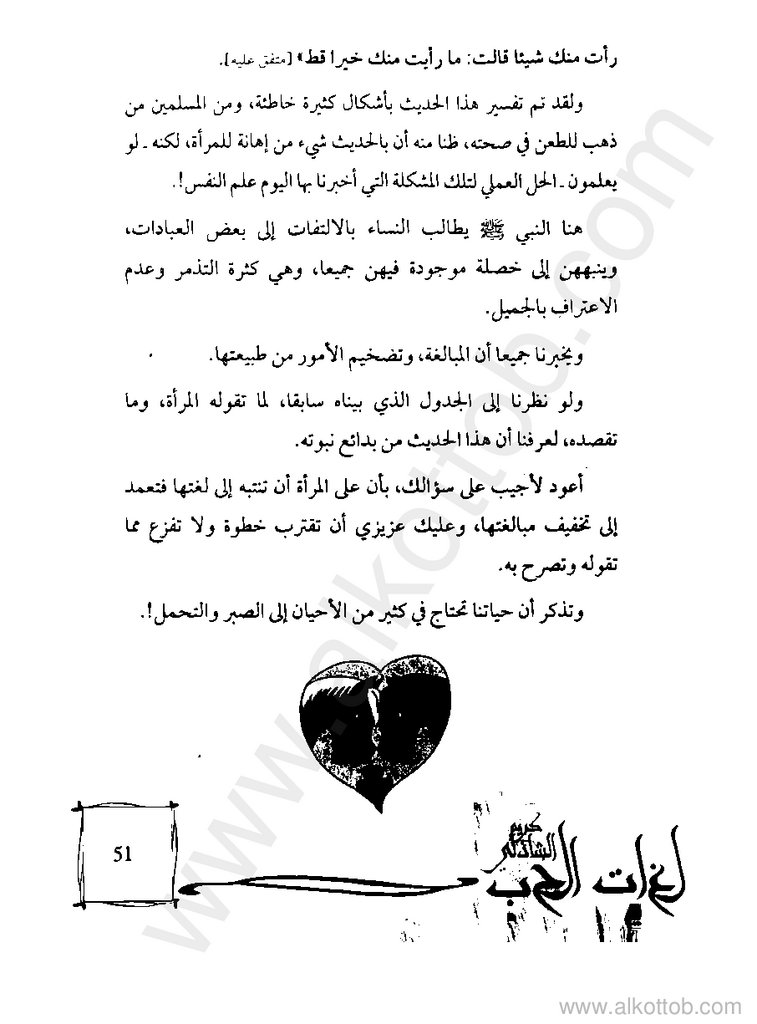 رأت منك شيئا قالت: ما رأيت منك خيرا قط» [متفق عليه].
ولقد تم تفسير هذا الحديث بأشكال كثيرة خاطئة، ومن المسلمين من
ذهب للطعن في صحته، ظنا منه أن بالحديث شيء من إهانة للمرأة، لكنه ـ لو
يعلمون ـ الحل العملي لتلك المشكلة التي أخبرنا بها اليوم علم النفس!.
هنا النبي ﷺ يطالب النساء بالالتفات إلى بعض العبادات،
وينبههن إلى خصلة موجودة فيهن جميعا، وهي كثرة التذمر وعدم
الاعتراف بالجميل.
ويخبرنا جميعا أن المبالغة، وتضخيم الأمور من طبيعتها.
ولو نظرنا إلى الجدول الذي بيناه سابقا، لما تقوله المرأة، وما
تقصده، لعرفنا أن هذا الحديث من بدائع نبوته.
أعود لأجيب على سؤالك، بأن على المرأة أن تنتبه إلى لغتها فتعمد
إلى تخفيف مبالغتها، وعليك عزيزي أن تقترب خطوة ولا تفزع مما
تقوله وتصرح به.
وتذكر أن حياتنا تحتاج في كثير من الأحيان إلى الصبر والتحمل!.
كريم
الشاذلي
لغات الحب
51
www.alkottob.com
www.alkottob.com